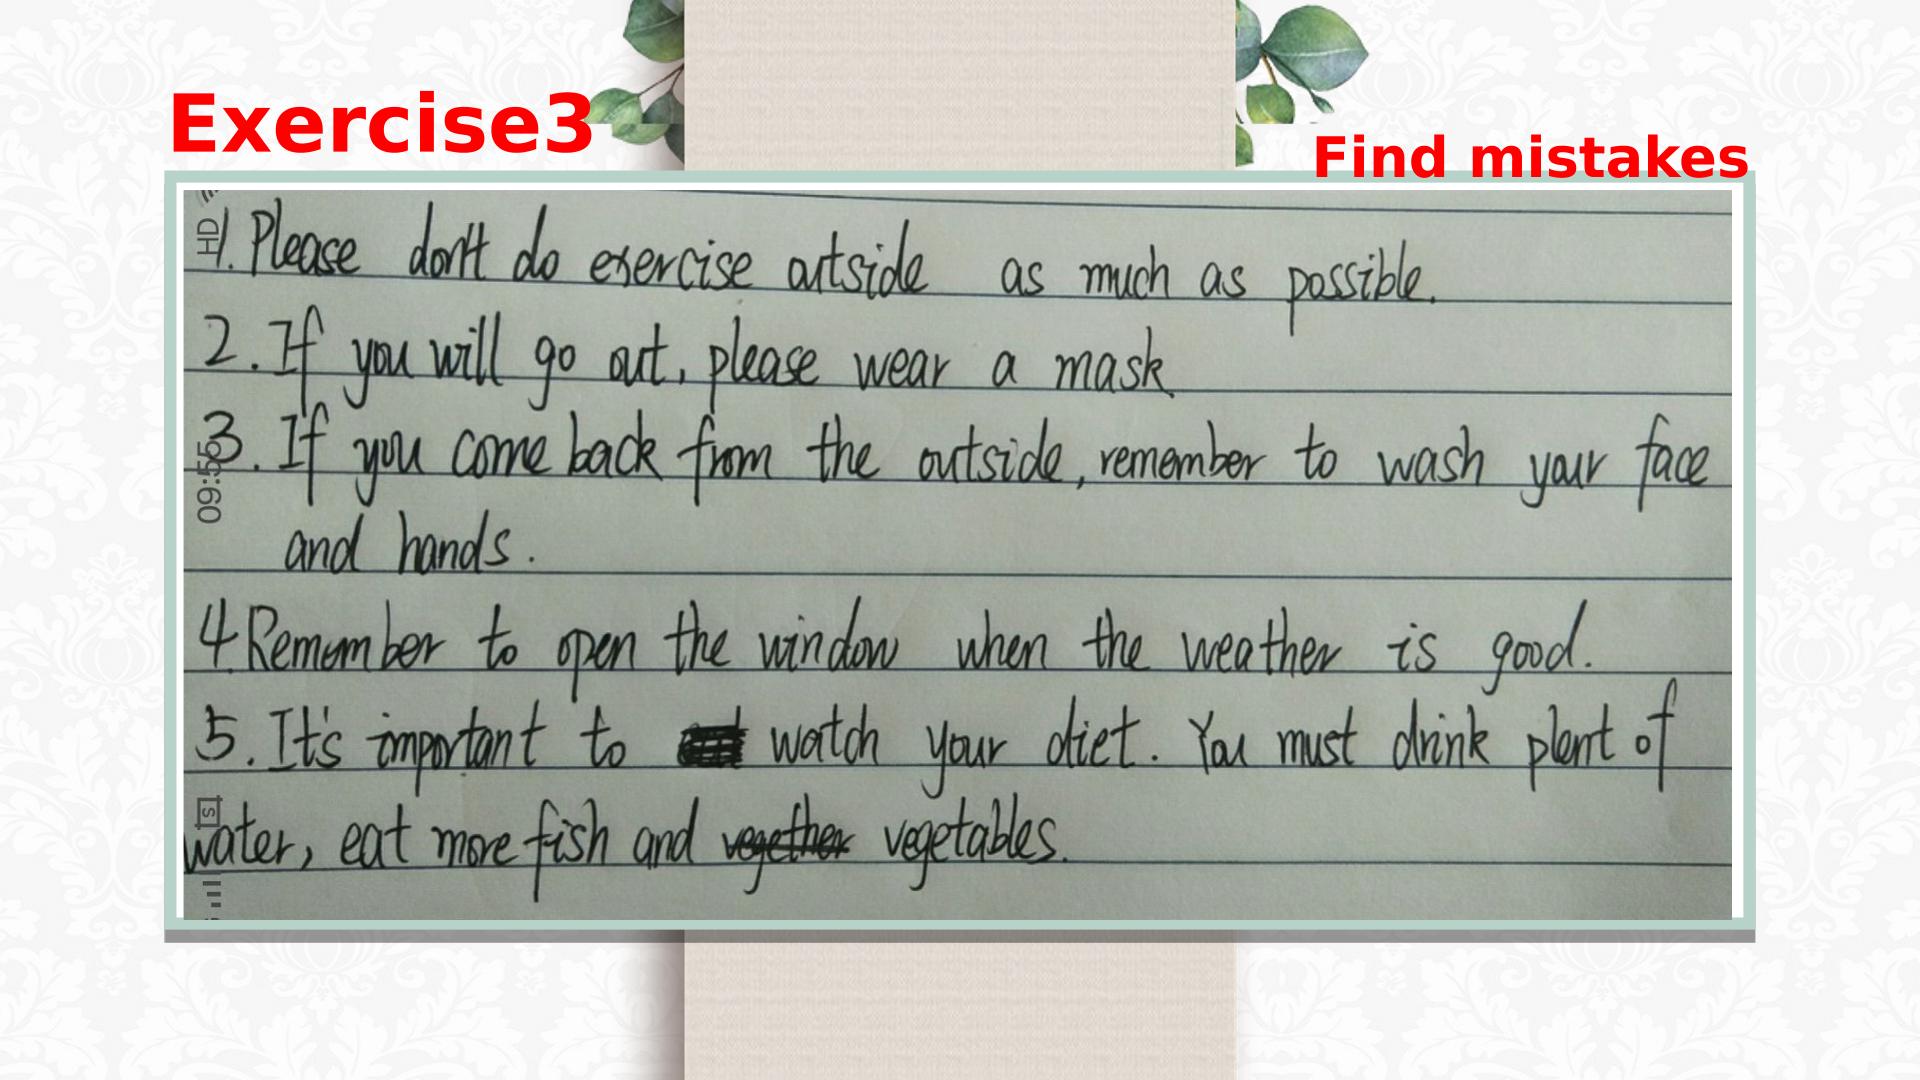 Exercise3
Find mistakes
HD
1. Please don't do exercise outside as much as possible.
2. If you will go out, please wear a mask
09:55
3. If you come back from the outside, remember to wash your face
and hands.
4. Remember to open the window when the weather is good.
5. It's important to watch your diet. You must drink plent of
water, eat more fish and vegether vegetables.